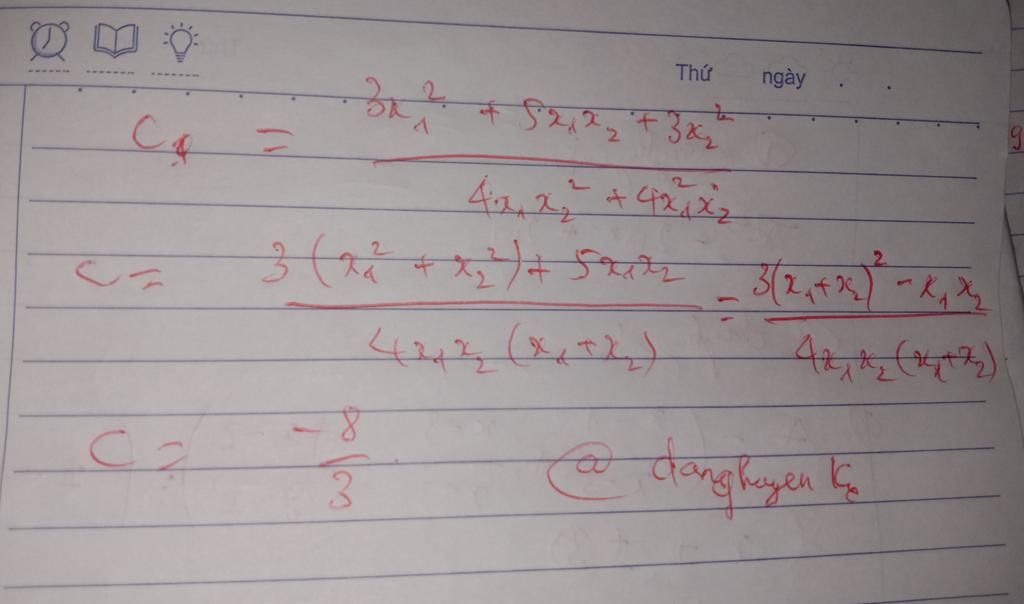 Thứ ngày . .
C₁ = (3x₁² + 5x₁x₂ + 3x₂²) / (4x₁x₂² + 4x₁²x₂)
C = (3(x₁² + x₂²) + 5x₁x₂) / (4x₁x₂(x₁ + x₂)) = (3(x₁+x₂)² - x₁x₂) / (4x₁x₂(x₁+x₂))
C = -8/3 @ danghuyen